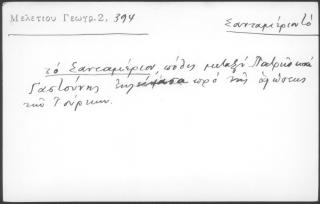 Μελετίου Γεωγρ. 2, 394
Σανταμέριον τό
τό Σανταμέριον, πόλις μεταξύ Πατρῶν καί
Γαστούνης πρό τῆς ἁλώσεως
τῶν Τούρκων.